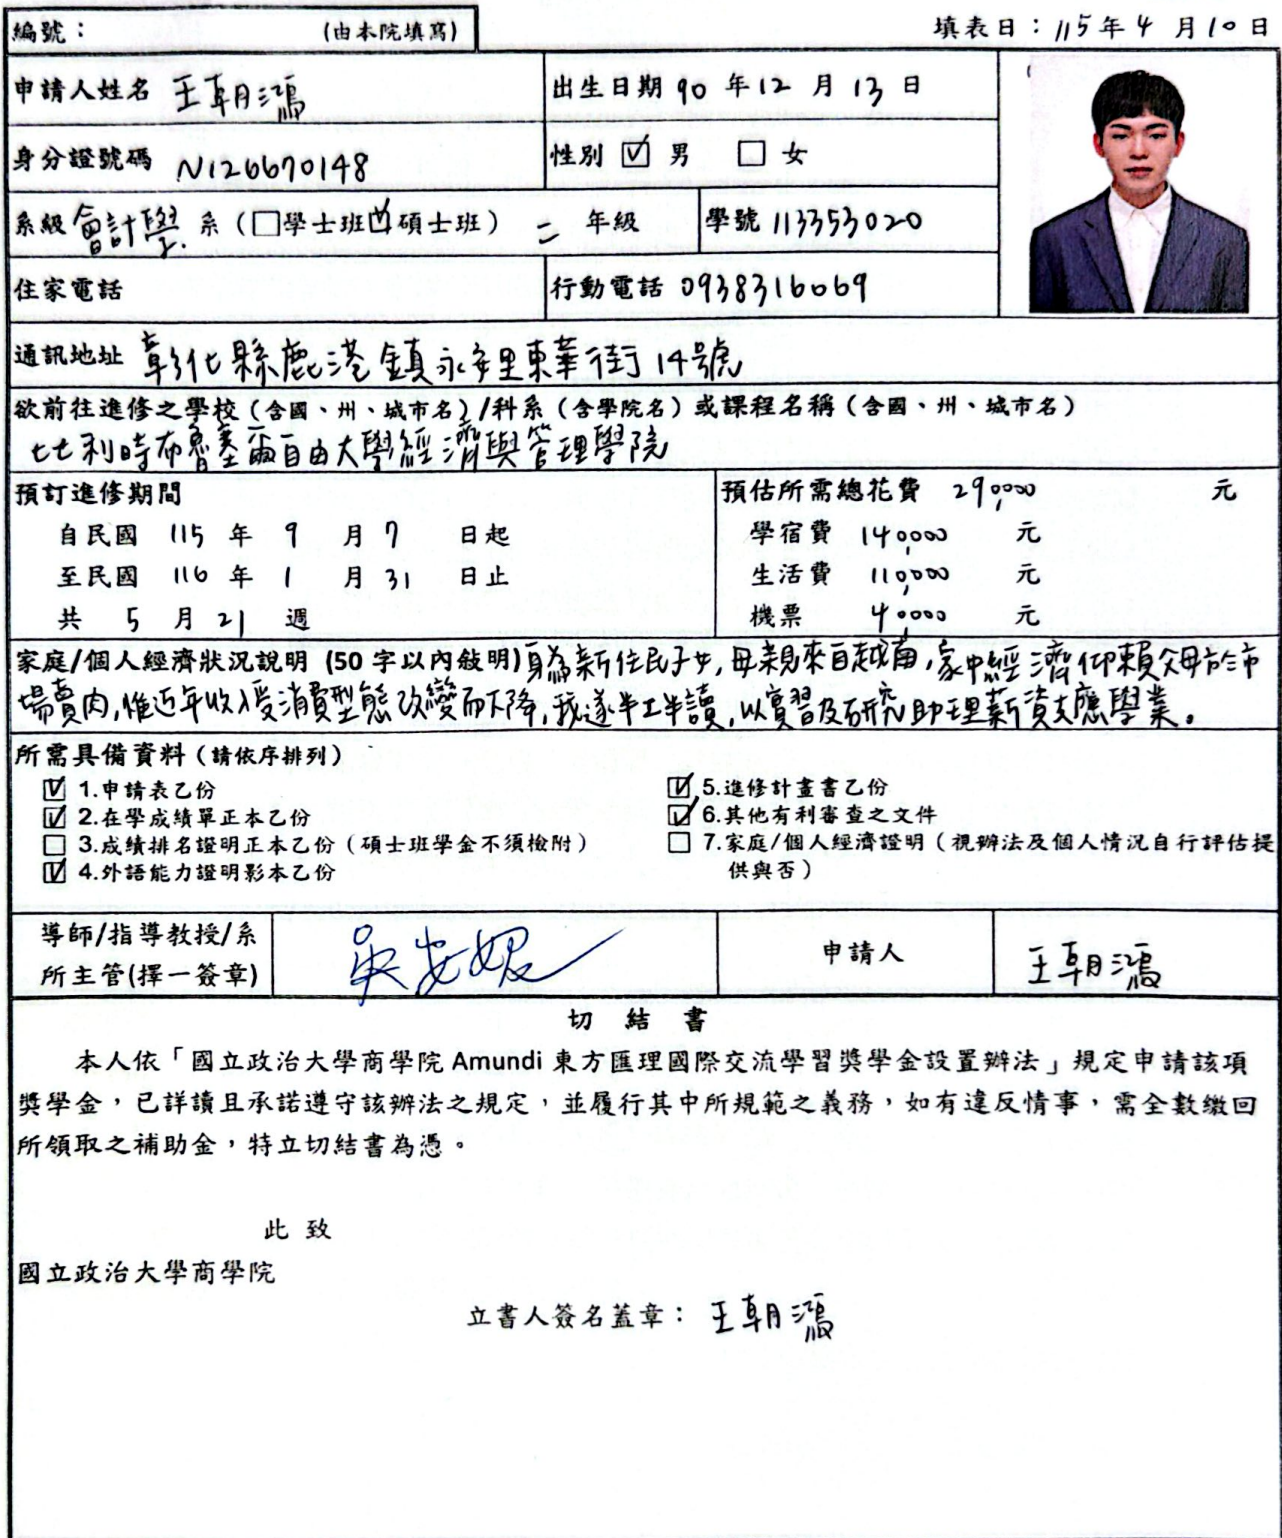 編號： (由本院填寫)
填表日：115年4月10日
申請人姓名 王朝鴻
出生日期 90 年 12 月 13 日
身分證號碼 N126670148
性別 ☑ 男 □ 女
系級 會計學 系（□學士班☑碩士班） 二 年級
學號 113353020
住家電話
行動電話 0938316069
通訊地址 彰化縣鹿港鎮永安里東華街14號
欲前往進修之學校（含國、州、城市名）/科系（含學院名）或課程名稱（含國、州、城市名）
比利時布魯塞爾自由大學經濟與管理學院
預訂進修期間
自民國 115 年 9 月 7 日起
至民國 116 年 1 月 31 日止
共 5 月 21 週
預估所需總花費 290,000 元
學宿費 140,000 元
生活費 110,000 元
機票 40,000 元
家庭/個人經濟狀況說明 (50 字以內敍明)身為新住民子女,母親來自越南,家中經濟仰賴父母於市
場賣肉,惟近年收入受消費型態改變而下降,我遂半工半讀,以實習及研究助理薪資支應學業。
所需具備資料（請依序排列）
☑ 1.申請表乙份
☑ 2.在學成績單正本乙份
□ 3.成績排名證明正本乙份（碩士班學金不須檢附）
☑ 4.外語能力證明影本乙份
☑ 5.進修計畫書乙份
☑ 6.其他有利審查之文件
□ 7.家庭/個人經濟證明（視辦法及個人情況自行評估提
供與否）
導師/指導教授/系
所主管(擇一簽章)
吳安妮
申請人
王朝鴻
切 結 書
本人依「國立政治大學商學院 Amundi 東方匯理國際交流學習獎學金設置辦法」規定申請該項
獎學金，已詳讀且承諾遵守該辦法之規定，並履行其中所規範之義務，如有違反情事，需全數繳回
所領取之補助金，特立切結書為憑。
此 致
國立政治大學商學院
立書人簽名蓋章： 王朝鴻